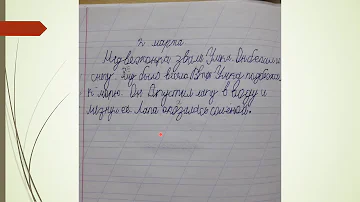 2 марта
Медвежонка звали Умка. Он бегал по
снегу. Ему было весело. Вот Умка подбежал
к морю. Он опустил лапу в воду и
лизнул её. Лапа оказалась солёной.